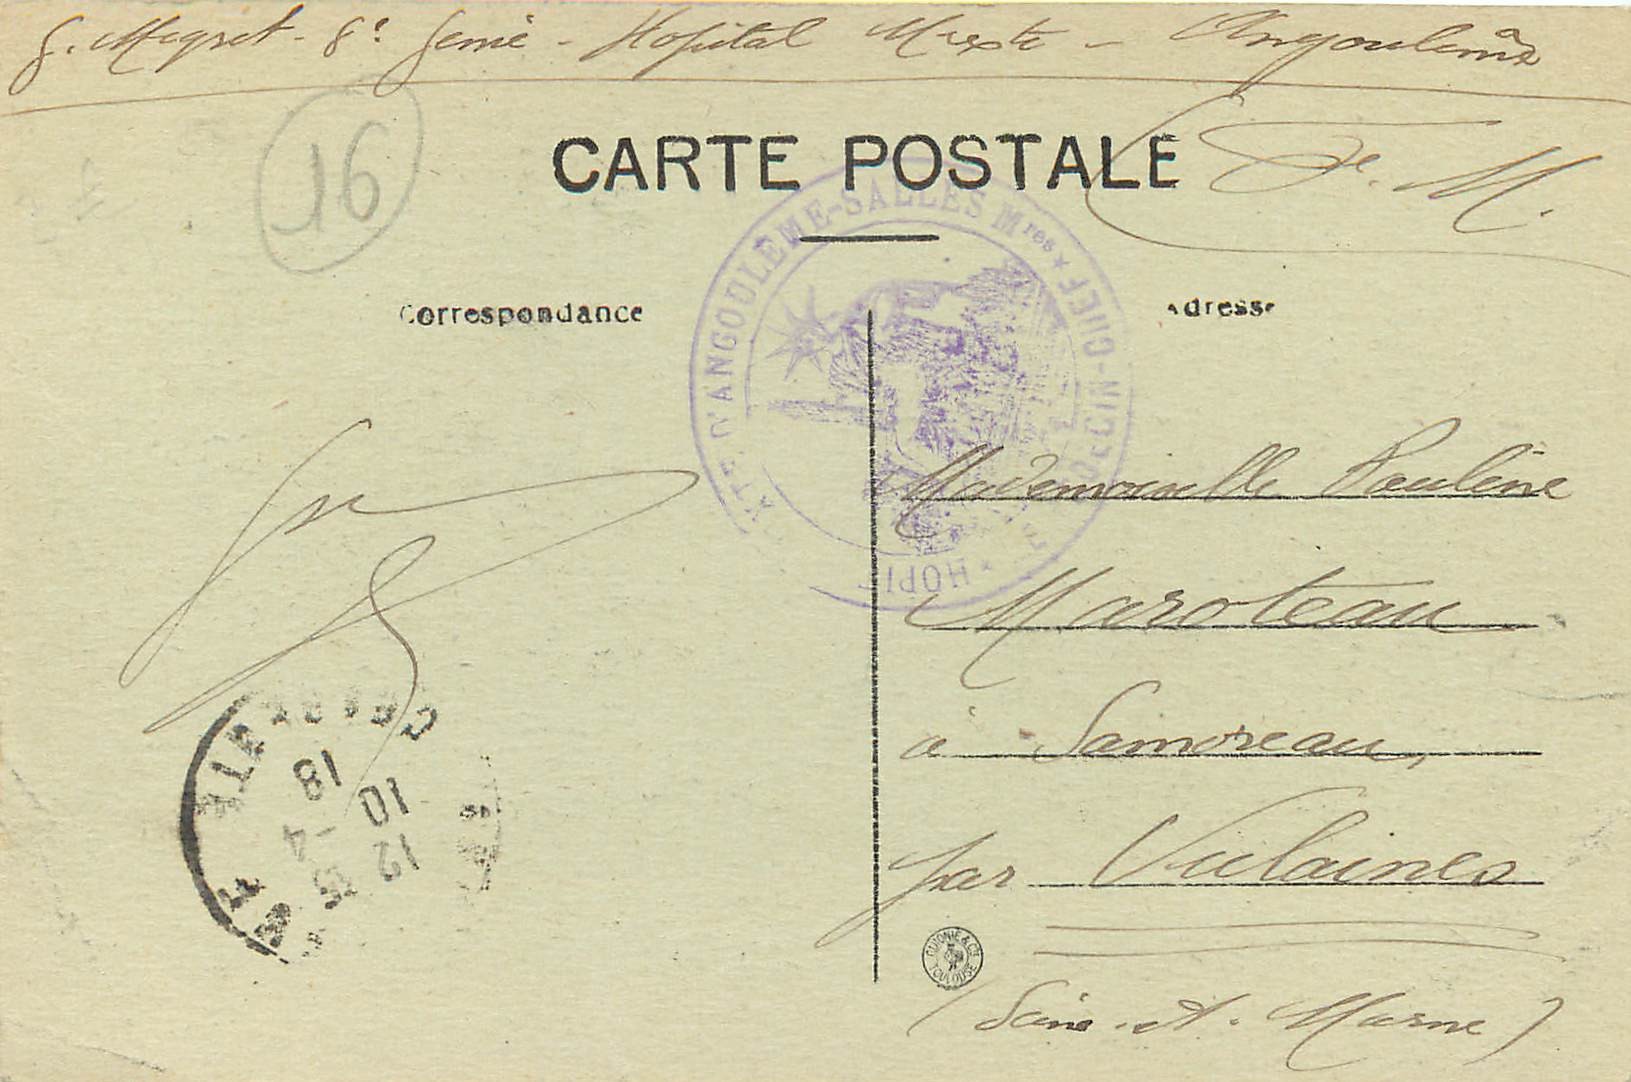 G. Megret - 8e Génie - Hopital Mixte - Angoulême
16
CARTE POSTALE
F. M.
Correspondance
Adresse
D'ANGOULÊME-SALLES Mres * MÉDECIN-CHEF * HOPI
Mademoiselle Pauline
Maroteau
à Samoreau,
par Vulaines
(Seine-et-Marne)
18
10 -4
12 15
GUIONIE & Cie
TOULOUSE